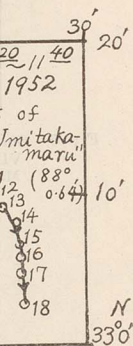 30'
20 40 20'
~11
1952
of
Umitaka-
maru"
(88°
0.64) 10'
12
13
14
15
16
17
18
N
33°0'